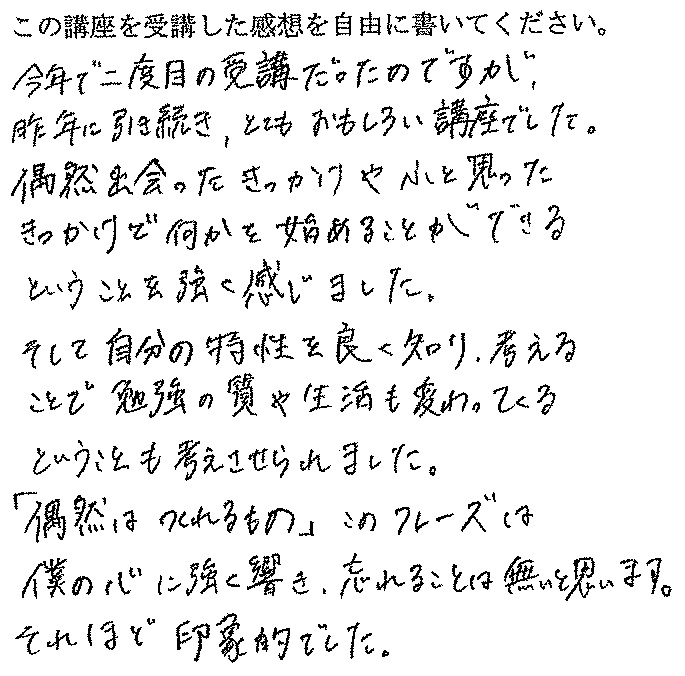 この講座を受講した感想を自由に書いてください。
今年で二度目の受講だったのですが、
昨年に引き続き、とてもおもしろい講座でした。
偶然出会ったきっかけやふと思った
きっかけで何かを始めることができる
ということを強く感じました。
そして自分の特性を良く知り、考える
ことで勉強の質や生活も変わってくる
ということも考えさせられました。
「偶然はつくれるもの」このフレーズは
僕の心に強く響き、忘れることは無いと思います。
それほど印象的でした。